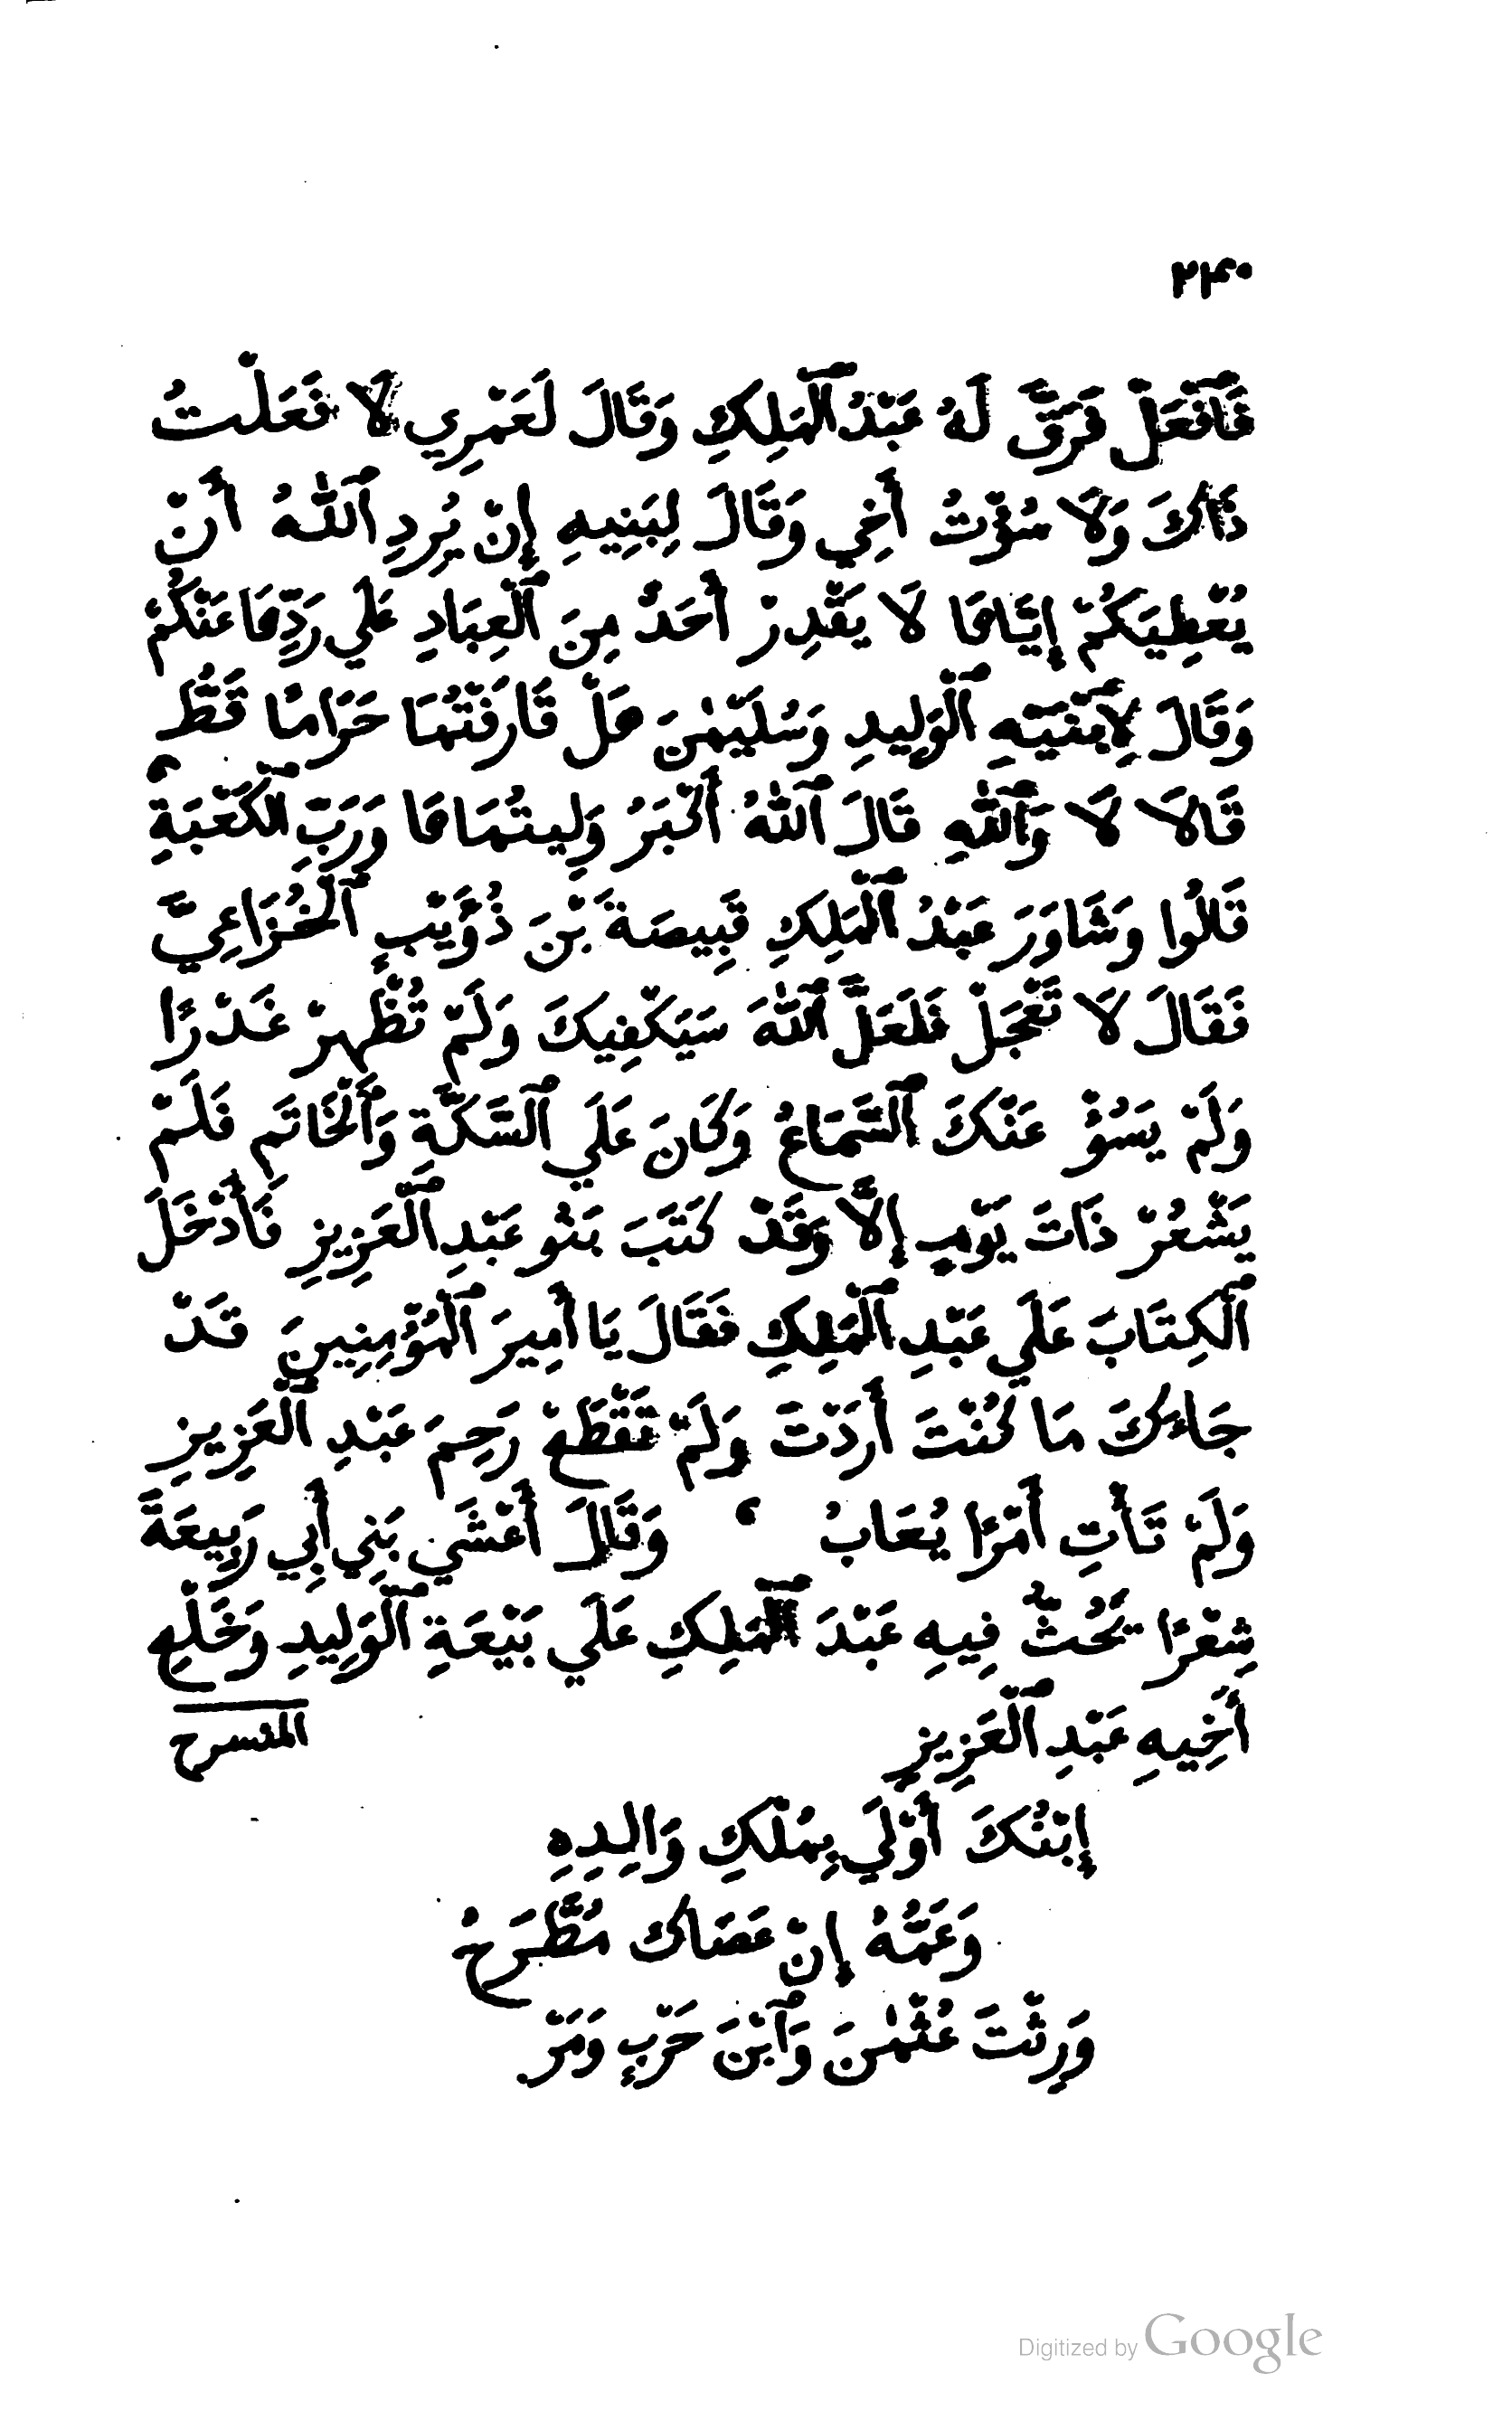 ٢٤٠
فَٱفْعَلْ فَرَقَّ لَهُ عَبْدُ ٱلْمَلِكِ وَقَالَ لَعَمْرِي لَا فَعَلْتُ
ذَاكَ وَلَا سُؤْتُ أَخِي وَقَالَ لِبَنِيهِ إِنْ يُرِدِ ٱللّٰهُ أَنْ
يُعْطِيَكُمْ إِيَّاهَا لَا يَقْدِرْ أَحَدٌ مِنَ ٱلْعِبَادِ عَلَي رَدِّهَا عَنْكُمْ
وَقَالَ لِٱبْنَيْهِ ٱلْوَلِيدِ وَسُلَيْمٰنَ هَلْ قَارَفْتُمَا حَرَامًا قَطُّ
قَالَا لَا وَٱللّٰهِ قَالَ ٱللّٰهُ أَكْبَرُ وَلِيتُمَاهَا وَرَبِّ ٱلْكَعْبَةِ ،
قَالُوا وَشَاوَرَ عَبْدُ ٱلْمَلِكِ قَبِيصَةَ بْنَ ذُؤَيْبٍ ٱلْخُزَاعِيَّ
فَقَالَ لَا تَعْجَلْ فَلَعَلَّ ٱللّٰهَ سَيَكْفِيكَ وَلَمْ تُظْهِرْ غَدْرًا
وَلَمْ يَسُؤْ عَنْكَ ٱلسَّمَاعُ وَكَانَ عَلَي ٱلسَّكَّةِ وَٱلْخَاتَمِ فَلَمْ
يَشْعُرْ ذَاتَ يَوْمٍ إِلَّا وَقَدْ كَتَبَ بَنُو عَبْدِ ٱلْعَزِيزِ فَأَدْخَلَ
ٱلْكِتَابَ عَلَي عَبْدِ ٱلْمَلِكِ فَقَالَ يَا أَمِيرَ ٱلْمُؤْمِنِينَ قَدْ
جَاءَكَ مَا كُنْتَ أَرَدْتَ وَلَمْ تَقْطَعْ رَحِمَ عَبْدِ ٱلْعَزِيزِ
وَلَمْ تَأْتِ أَمْرًا يُعَابُ ، وَقَالَ أَعْشَي بَنِي أَبِي رَبِيعَةَ
شِعْرًا يَحُثُّ فِيهِ عَبْدَ ٱلْمَلِكِ عَلَي بَيْعَةِ ٱلْوَلِيدِ وَخَلْعِ
أَخِيهِ عَبْدِ ٱلْعَزِيزِ المنسرح
إِبْنُكَ أَوْلَي بِمُلْكِ وَالِدِهِ
وَعَمُّهُ إِنْ عَصَاكَ مُطَّرَحُ
وَرِثْتَ عُثْمٰنَ وَٱبْنَ حَرْبٍ وَمَرْ
Digitized by Google